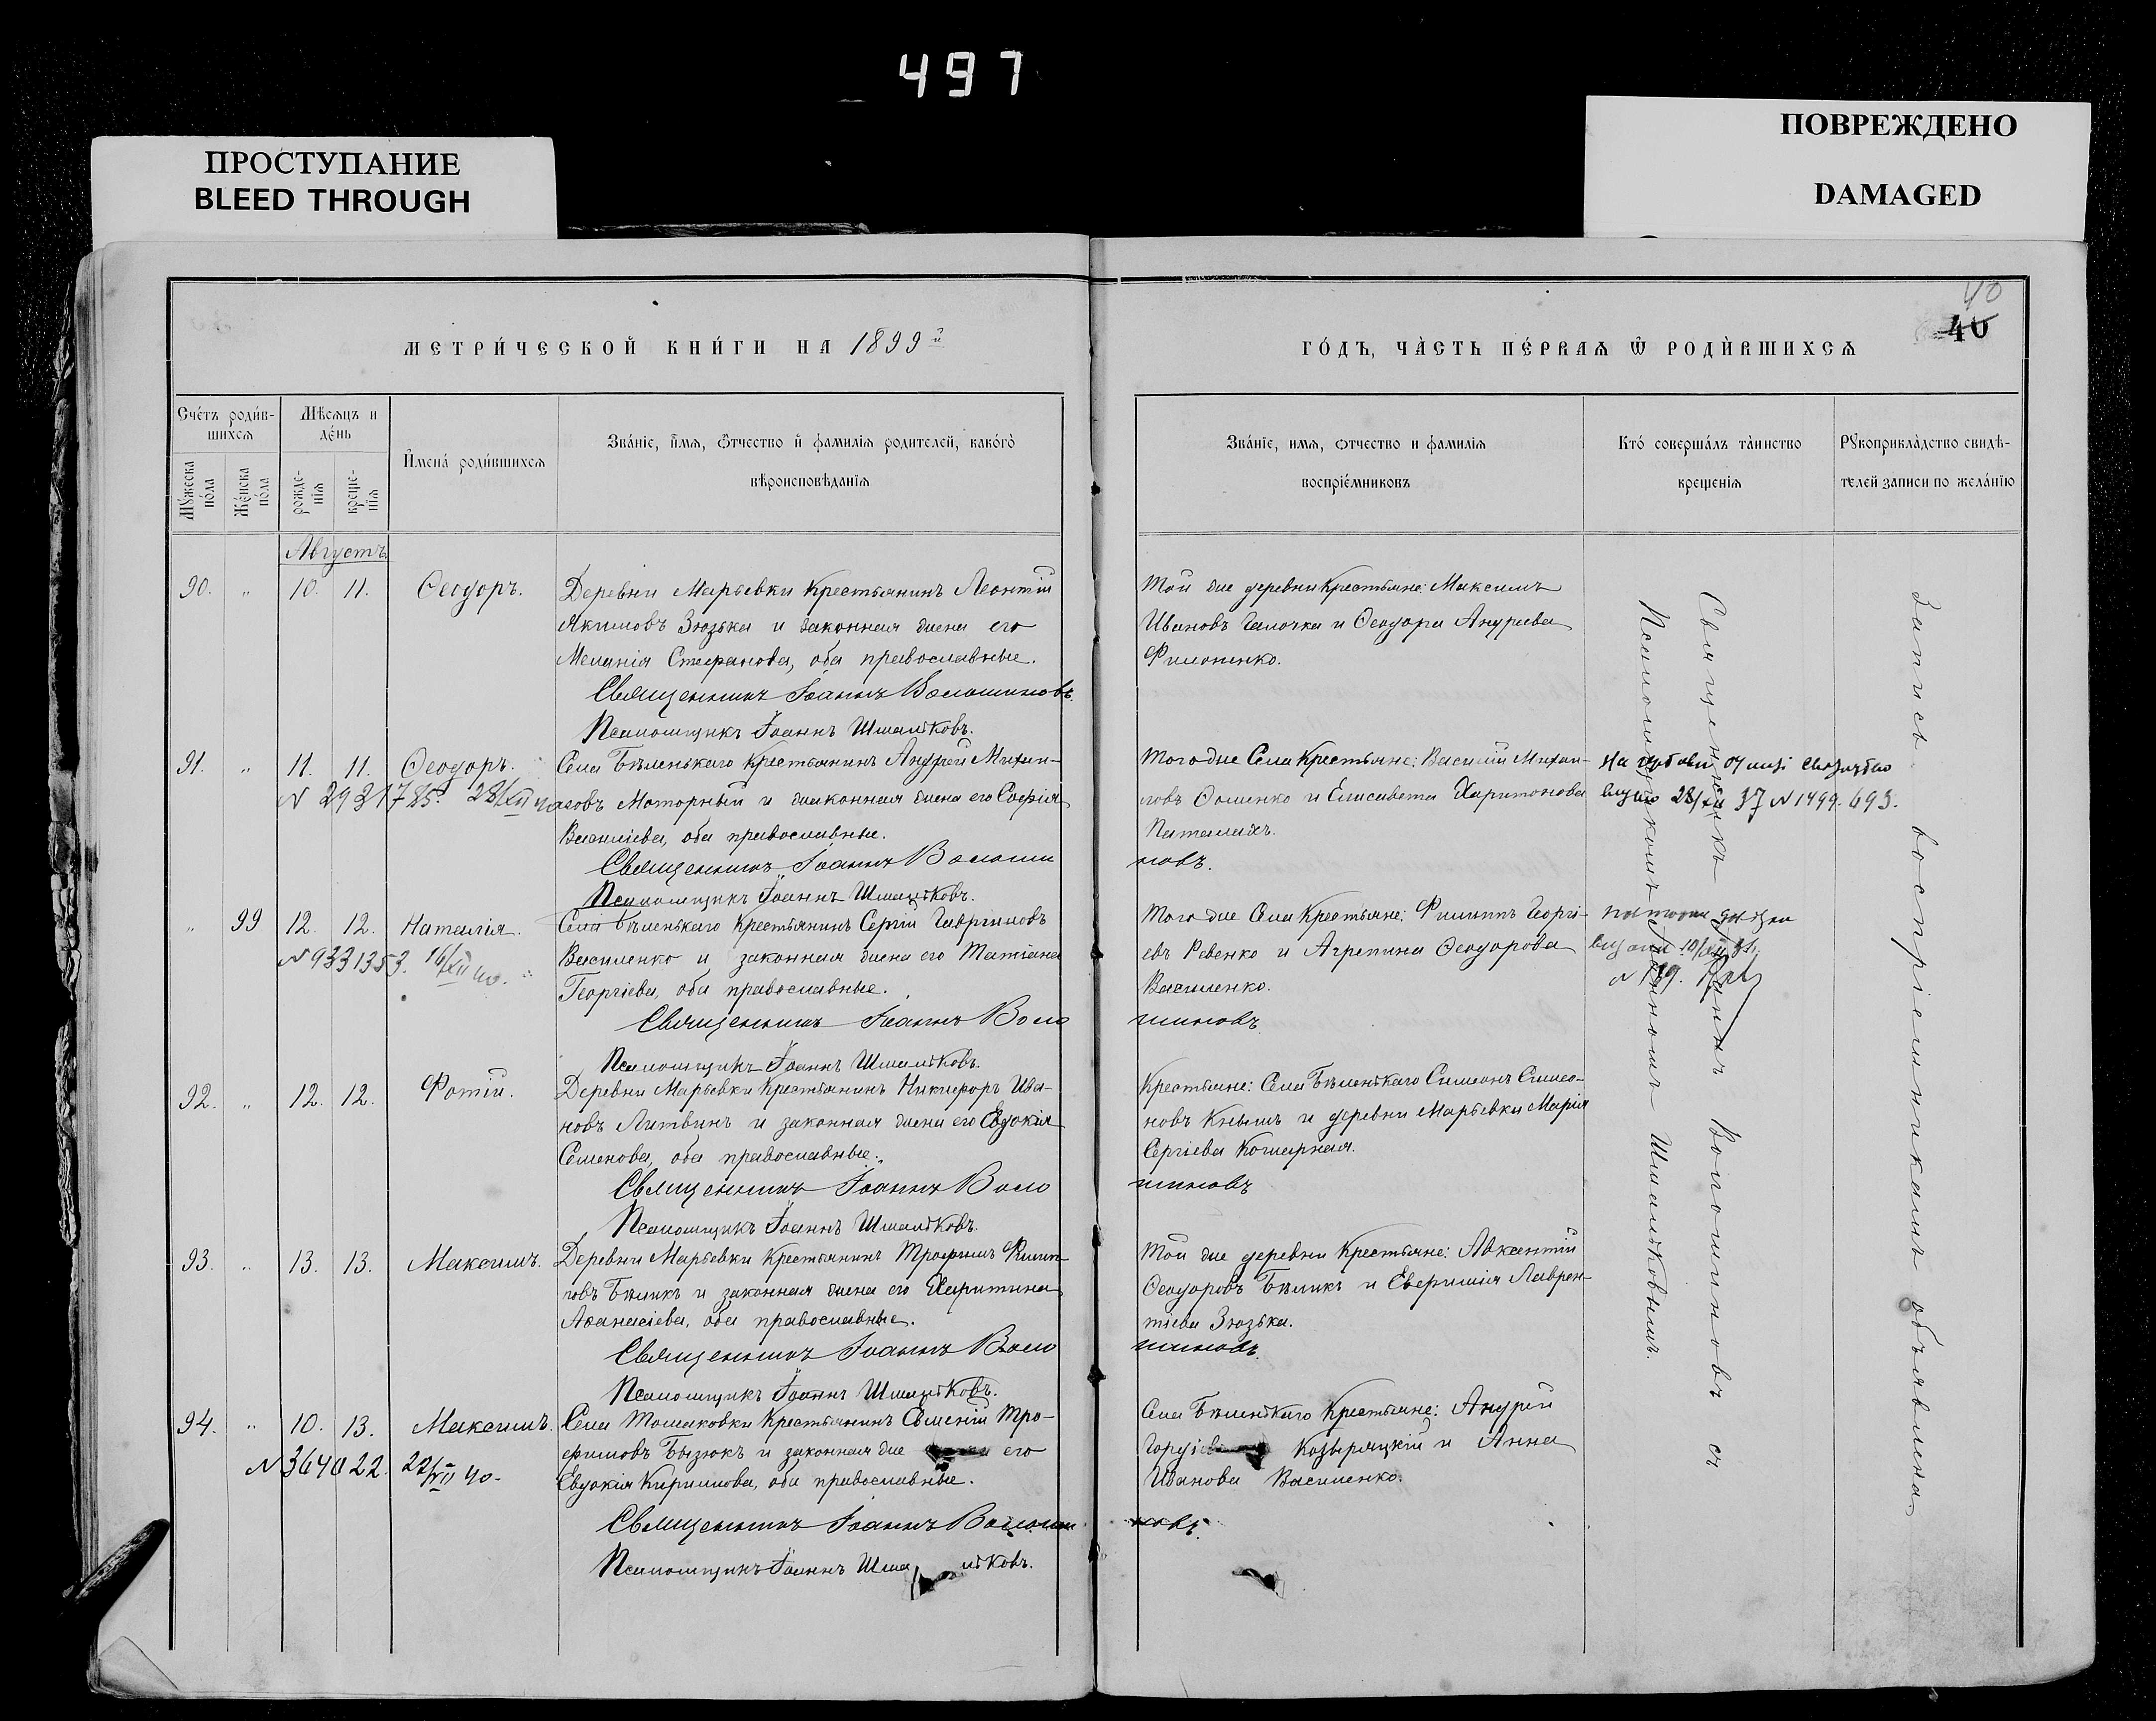 497
ПРОСТУПАНИЕ
BLEED THROUGH
ПОВРЕЖДЕНО
DAMAGED
40
40
МЕТРИ́ЧЕСКОЙ КНИ́ГИ НА 1899й
ГО́ДЪ, ЧА̀СТЬ ПЕ́РВАѦ Ѿ РОДЍВШИХСѦ
Сче́тъ роди́в-
шихсѧ
Мѣ́сѧцъ и
де́нь
Мꙋ́жеска
по́ла
Же́нска
по́ла
рожде-
нїѧ
креще-
нїѧ
И҆мена́ роди́вшихсѧ
Зва́нїе, и҆́мѧ, ѻ҆́тчество и҆ фами́лїѧ роди́телей, како́гѡ
вѣроисповѣ́данїѧ
Зва́нїе, имѧ, ѻтчество и фами́лїѧ
воспрїе́мниковъ
Кто́ соверша́лъ та́инство
креще́нїѧ
Рꙋкоприкла́дство свидѣ́-
телей записи по жела́нїю
Августъ
90. „ 10. 11. Ѳеодоръ.
Деревни Марьевки Крестьянинъ Леонтій
Акимовъ Зюзька и законная жена его
Меланія Стефанова, оба православные.
Священникъ Іоаннъ Волошиновъ.
Псаломщикъ Іоаннъ Шмальковъ.
Той же деревни Крестьяне: Максимъ
Ивановъ Галочка и Ѳеодора Андреева
Филоненко.
91. „ 11. 11. Ѳеодоръ.
N 2931785. 28/XII 40
Села Бѣленькаго Крестьянинъ Андрей Михаи-
ловъ Моторный и законная жена его Софія
Василіева, оба православные.
Священникъ Іоаннъ Волоши
новъ.
Псаломщикъ Іоаннъ Шмальковъ.
Того-же Села Крестьяне: Василій Михаи-
ловъ Ѳоменко и Елисавета Харитонова
Паталахъ.
28/XII 37 N 1499. 693.
„ 99 12. 12. Наталія.
N 9331353. 16/XII 40.
Села Бѣленькаго Крестьянинъ Сергій Гавриловъ
Василенко и законная жена его Татіана
Георгіева, оба православные.
Священникъ Іоаннъ Воло
шиновъ.
Псаломщикъ Іоаннъ Шмальковъ.
Того-же Села Крестьяне: Филиппъ Георгі-
евъ Ревенко и Агрепина Ѳеодорова
Василенко.
92. „ 12. 12. Фотій.
Деревни Марьевки Крестьянинъ Никифоръ Ива-
новъ Литвинъ и законная жена его Евдокія
Семенова, оба православные.
Священникъ Іоаннъ Воло
шиновъ
Псаломщикъ Іоаннъ Шмальковъ.
Крестьяне: Села Бѣленькаго Симеонъ Симео-
новъ Кнышъ и деревни Марьевки Марія
Сергіева Кошарная.
93. „ 13. 13. Максимъ.
Деревни Марьевки Крестьянинъ Трофимъ Филип-
повъ Бѣликъ и законная жена его Харитина
Аѳанасіева, оба православные.
Священникъ Іоаннъ Воло
шиновъ.
Псаломщикъ Іоаннъ Шмальковъ.
Той же деревни Крестьяне: Авксентій
Ѳеодоровъ Бѣликъ и Евфимія Лаврен-
тіева Зюзька.
94. „ 10. 13. Максимъ.
N 3640 22. 22/XII 40-
Села Томаковки Крестьянинъ Евменій Тро-
фимовъ Бызюкъ и законная же его
Евдокія Кириллова, оба православные.
Священникъ Іоаннъ Волоши
новъ.
Псаломщикъ Іоаннъ Шмальковъ.
Села Бѣленькаго Крестьяне: Андрей
Козыряцкій и Анна
Иванова Василенко.
Священникъ Іоаннъ Волошиновъ съ
Псаломщикомъ Іоанномъ Шмальковымъ.
Запись воспріемникамъ объявлена